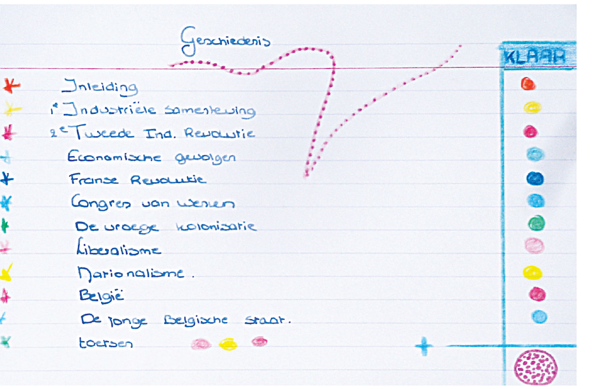 Geschiedenis
KLAAR
Inleiding
1e Industriële samenleving
2e Tweede Ind. Revolutie
Economische gevolgen
Franse Revolutie
Congres van Wenen
De vroege kolonisatie
Liberalisme
Nationalisme.
België
De jonge Belgische staat.
toetsen